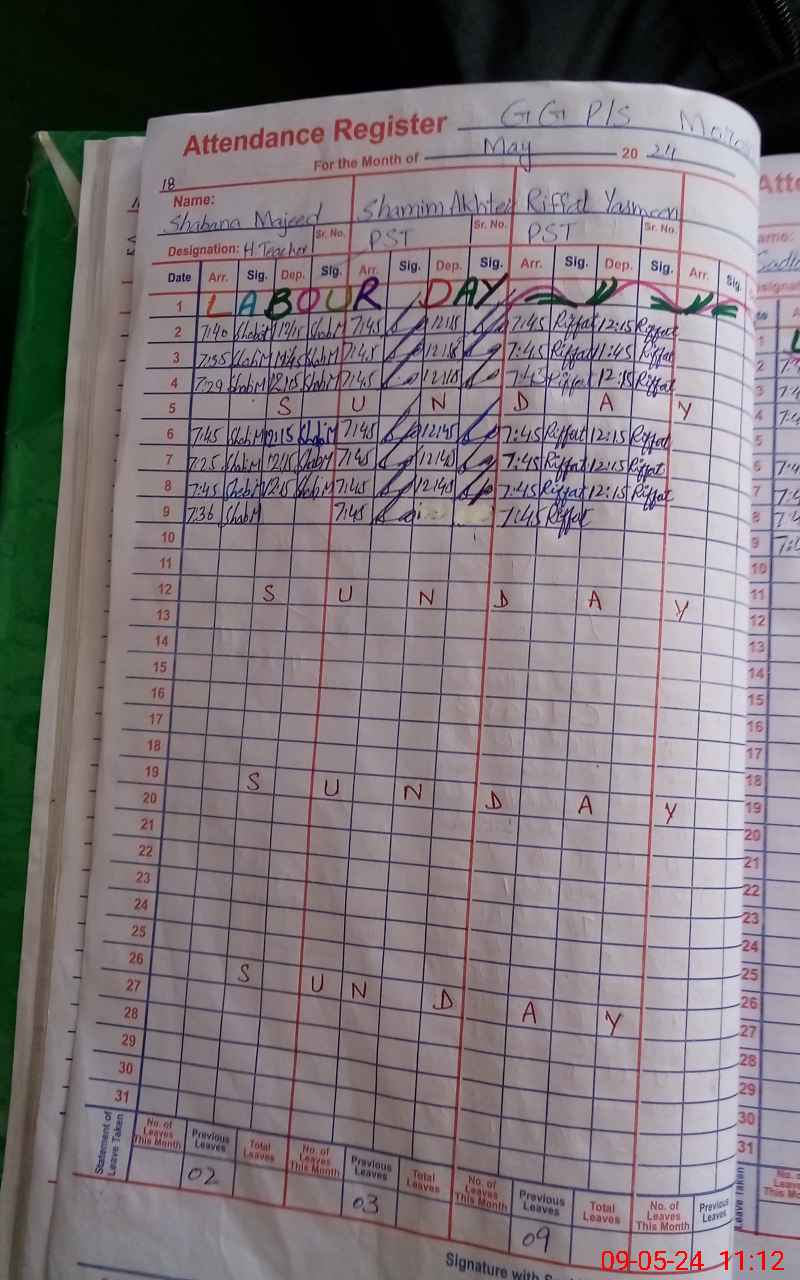 Attendance Register GG P/S
For the Month of May 20 24
18
Name:
Shabana Majeed Shamim Akhter Riffat Yasmeen
Designation: H.Teacher Sr. No. PST Sr. No. PST Sr. No.
Date Arr. Sig. Dep. Sig. Arr. Sig. Dep. Sig. Arr. Sig. Dep. Sig. Arr. Sig.
1 LABOUR DAY
2 7:40 ShabM 12:15 ShabM 7:45 12:15 7:45 Riffat 12:15 Riffat
3 7:35 ShabM 11:45 ShabM 7:45 7:45 Riffat 11:45 Riffat
4 7:29 ShabM 12:15 ShabM 7:45 7:45 Riffat 12:15 Riffat
5 S U N D A Y
6 7:45 ShabM 12:15 ShabM 7:45 12:45 7:45 Riffat 12:15 Riffat
7 7:25 ShabM 12:15 ShabM 7:45 12:45 7:45 Riffat 12:15 Riffat
8 7:45 ShabM 12:15 ShabM 7:45 12:45 7:45 Riffat 12:15 Riffat
9 7:36 ShabM 7:45 7:45 Riffat
10
11
12 S U N D A Y
13
14
15
16
17
18
19 S U N D A Y
20
21
22
23
24
25
26 S U N D A Y
27
28
29
30
31
Statement of Leave Taken
No. of Leaves This Month Previous Leaves Total Leaves No. of Leaves This Month Previous Leaves Total Leaves No. of Leaves This Month Previous Leaves Total Leaves No. of Leaves This Month Previous Leaves
02 03 09
Signature with
09-05-24 11:12